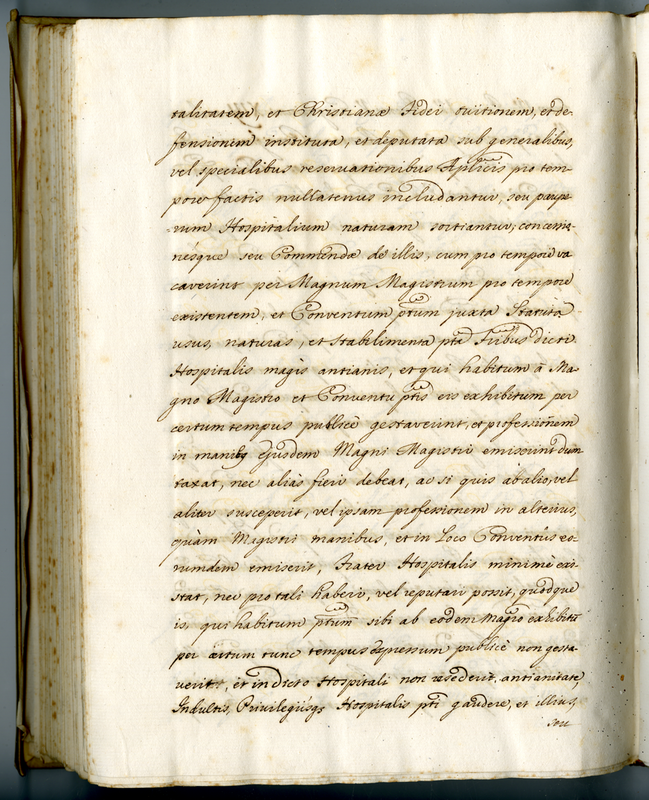 talitatem, et Christianæ Fidei tuitionem, et de-
fensionem instituta, et deputata sub generalibus,
vel specialibus reservationibus Aplicis pro tem-
pore factis nullatenus includantur, seu paupe-
rum Hospitalium naturam sortiantur, concessio-
nésque seu Commendæ de illis, cum pro tempore va
caverint per Magnum Magistrum pro tempore
existentem, et Conventum ptum juxta Statuta
usus, naturas, et stabilimenta pta Fribus dicti
Hospitalis magis antianis, et qui habitum à Ma-
gno Magistro et Conventu ptis eis exhibitum per
certum tempus publicè gestaverint, et professionem
in manibq ejusdem Magni Magistri emiserint dum
taxat, nec aliàs fieri debeat, ac si quis ab alio, vel
aliter susceperit, vel ipsam professionem in alterius,
quàm Magistri manibus, et in Loco Conventûs eo-
rumdem emiserit, Frater Hospitalis minimè exi-
stat, nec pro tali haberi, vel reputari possit, quodque
is, qui habitum ptum sibi ab eodem Magro exhibitũ
per certum tunc tempus expressum publicè non gesta-
verit, et in dicto Hospitali non resederit, antianitate,
Indultis, Privilegiisqs Hospitalis pti gaudere, et illius,
seu